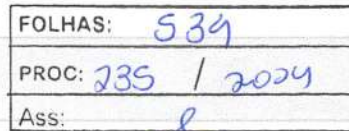 FOLHAS: 539
PROC: 235 / 2024
Ass: